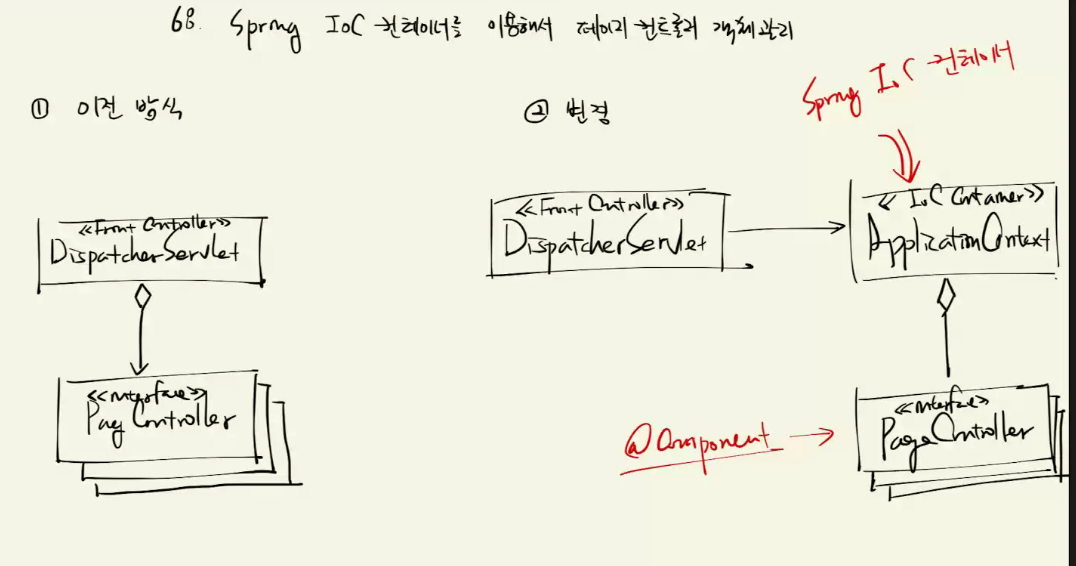 68. Spring IoC 컨테이너를 이용해서 페이지 컨트롤러 객체 관리
① 이전 방식
② 변경
Spring IoC 컨테이너
<<Front Controller>>
DispatcherServlet
<<interface>>
PageController
<<Front Controller>>
DispatcherServlet
<<IoC Container>>
ApplicationContext
@Component
<<interface>>
PageController